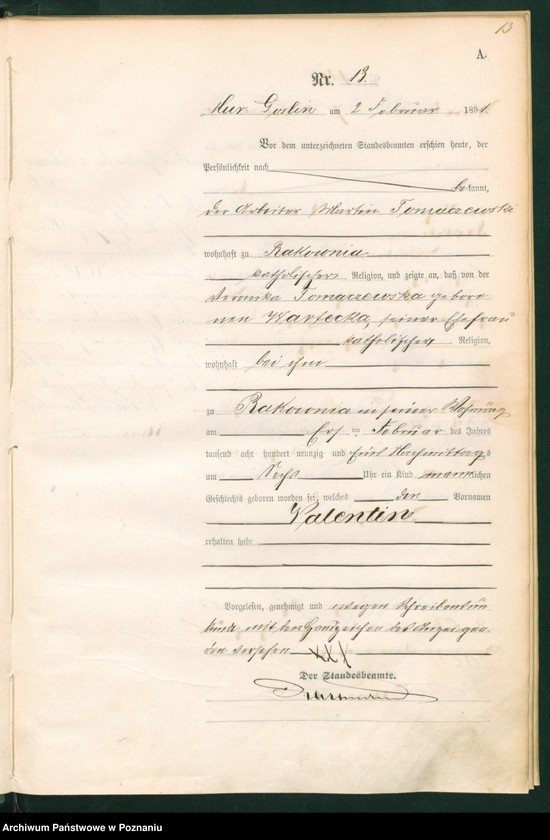 13
A.
Nr. 13
Mur. Goslin am 2 Februar 1895
Vor dem unterzeichneten Standesbeamten erschien heute, der
Persönlichkeit nach
bekannt,
der Arbeiter Martin Tomaczewski
wohnhaft zu Rakownia
katholischer Religion, und zeigte an, daß von der
Veronika Tomaczewska gebore
nen Wartecka, seiner Ehefrau
katholischer Religion,
wohnhaft bei ihm
zu Rakownia in seiner Wohnung
am Februar des Jahres
tausend acht hundert neunzig und fünf Nachmittags
um Sechs Uhr ein Kind männlichen
Geschlechts geboren worden sei, welches den Vornamen
Valentin
erhalten habe
Vorgelesen, genehmigt und wegen Schreibensun
kunde mit den Handzeichen des Anzeigen
den versehen XXX
Der Standesbeamte.
Archiwum Państwowe w Poznaniu